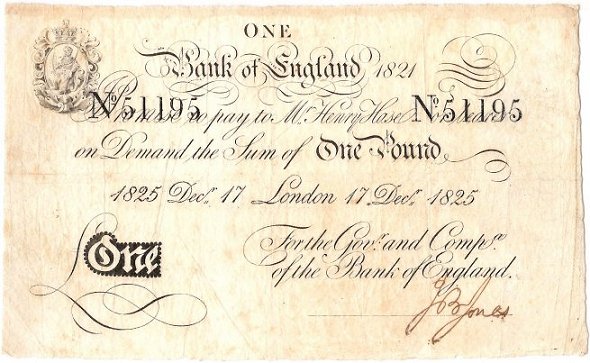 ONE
Bank of England 1821
Nº51195 Nº51195
Promise to pay to Mr. Henry Hase or bearer
on Demand the Sum of One Pound
1825 Decr. 17 London 17 Decr. 1825
For the Govr. and Compa. 
of the Bank of England.
One
J B Jones